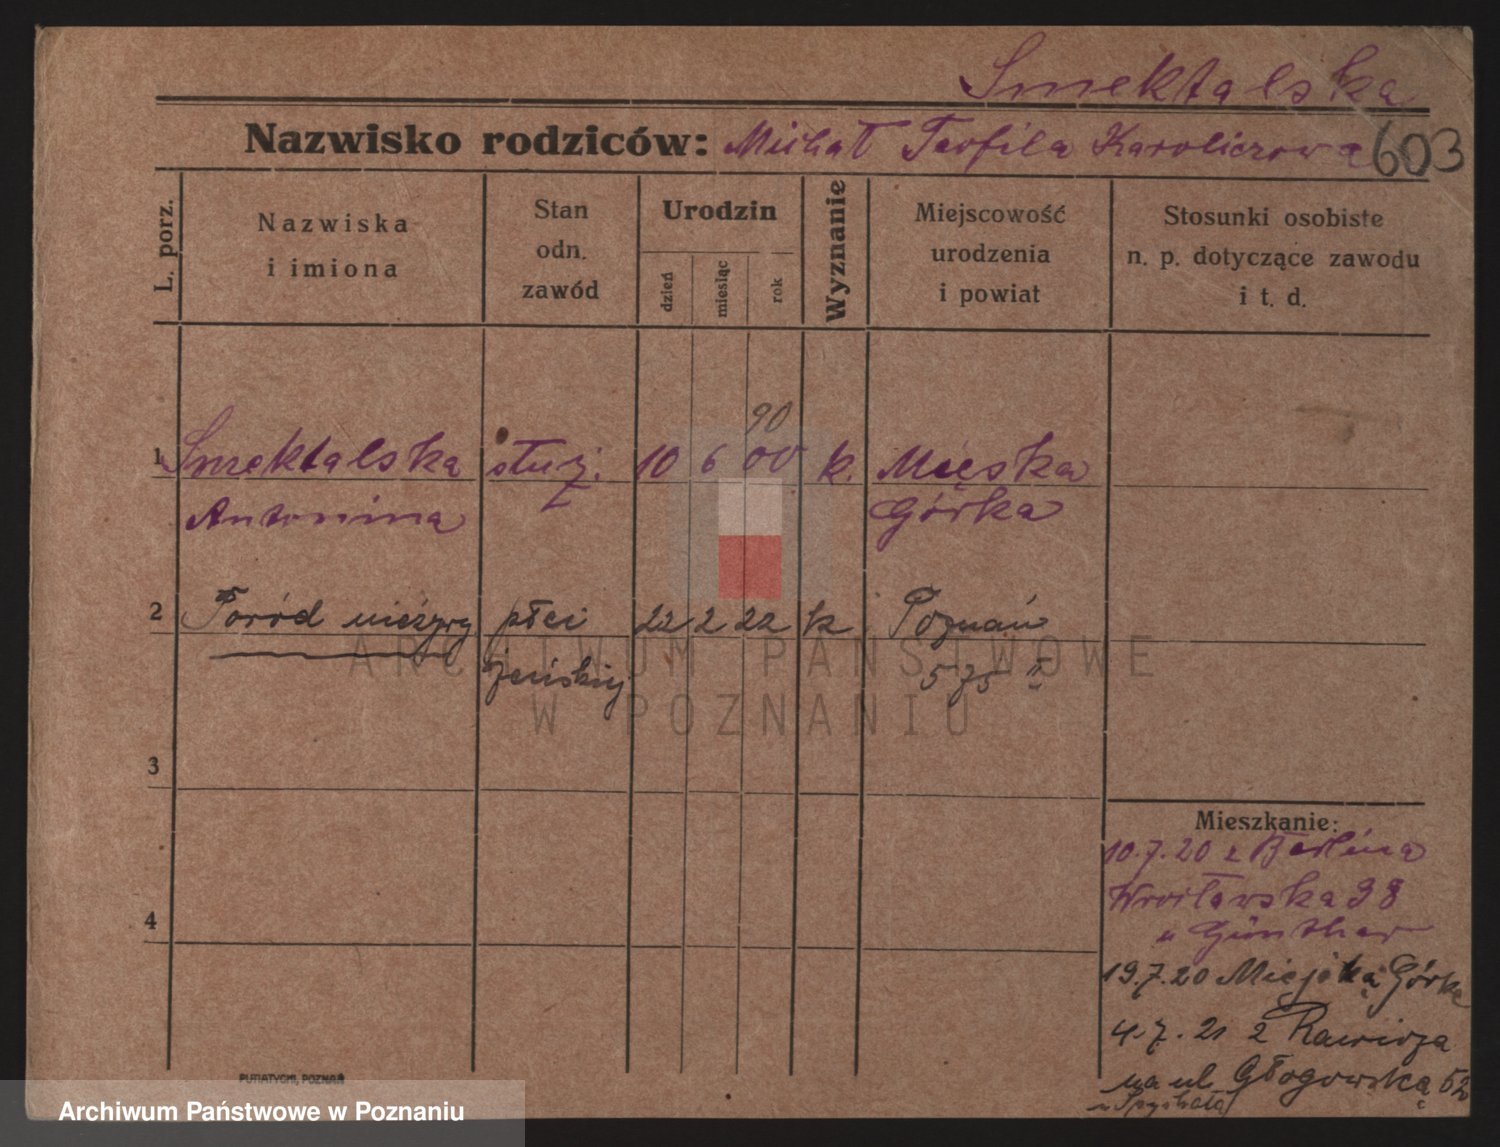 Smektalska
Nazwisko rodziców: Michał Teofila Karoliczowa 603
L. porz.
Nazwiska
i imiona
Stan
odn.
zawód
Urodzin
dzień
miesiąc
rok
Wyznanie
Miejscowość
urodzenia
i powiat
Stosunki osobiste
n. p. dotyczące zawodu
i t. d.
90
1 Smektalska służ. 10 6 00 k. Mięska
Antonina Górka
2 Poród nieżywy płci 22 2 22 k Poznań
żeńskiej 575 II
ARCHIWUM PAŃSTWOWE
W POZNANIU
3
4
Mieszkanie:
10.7.20 z Berlina
Wrocławska 38
u Günther
19.7.20 Miejska Górka
4.7.21 z Rawicza
na ul Głogowską 52
u Spychała
PUTIATYCKI, POZNAŃ
Archiwum Państwowe w Poznaniu